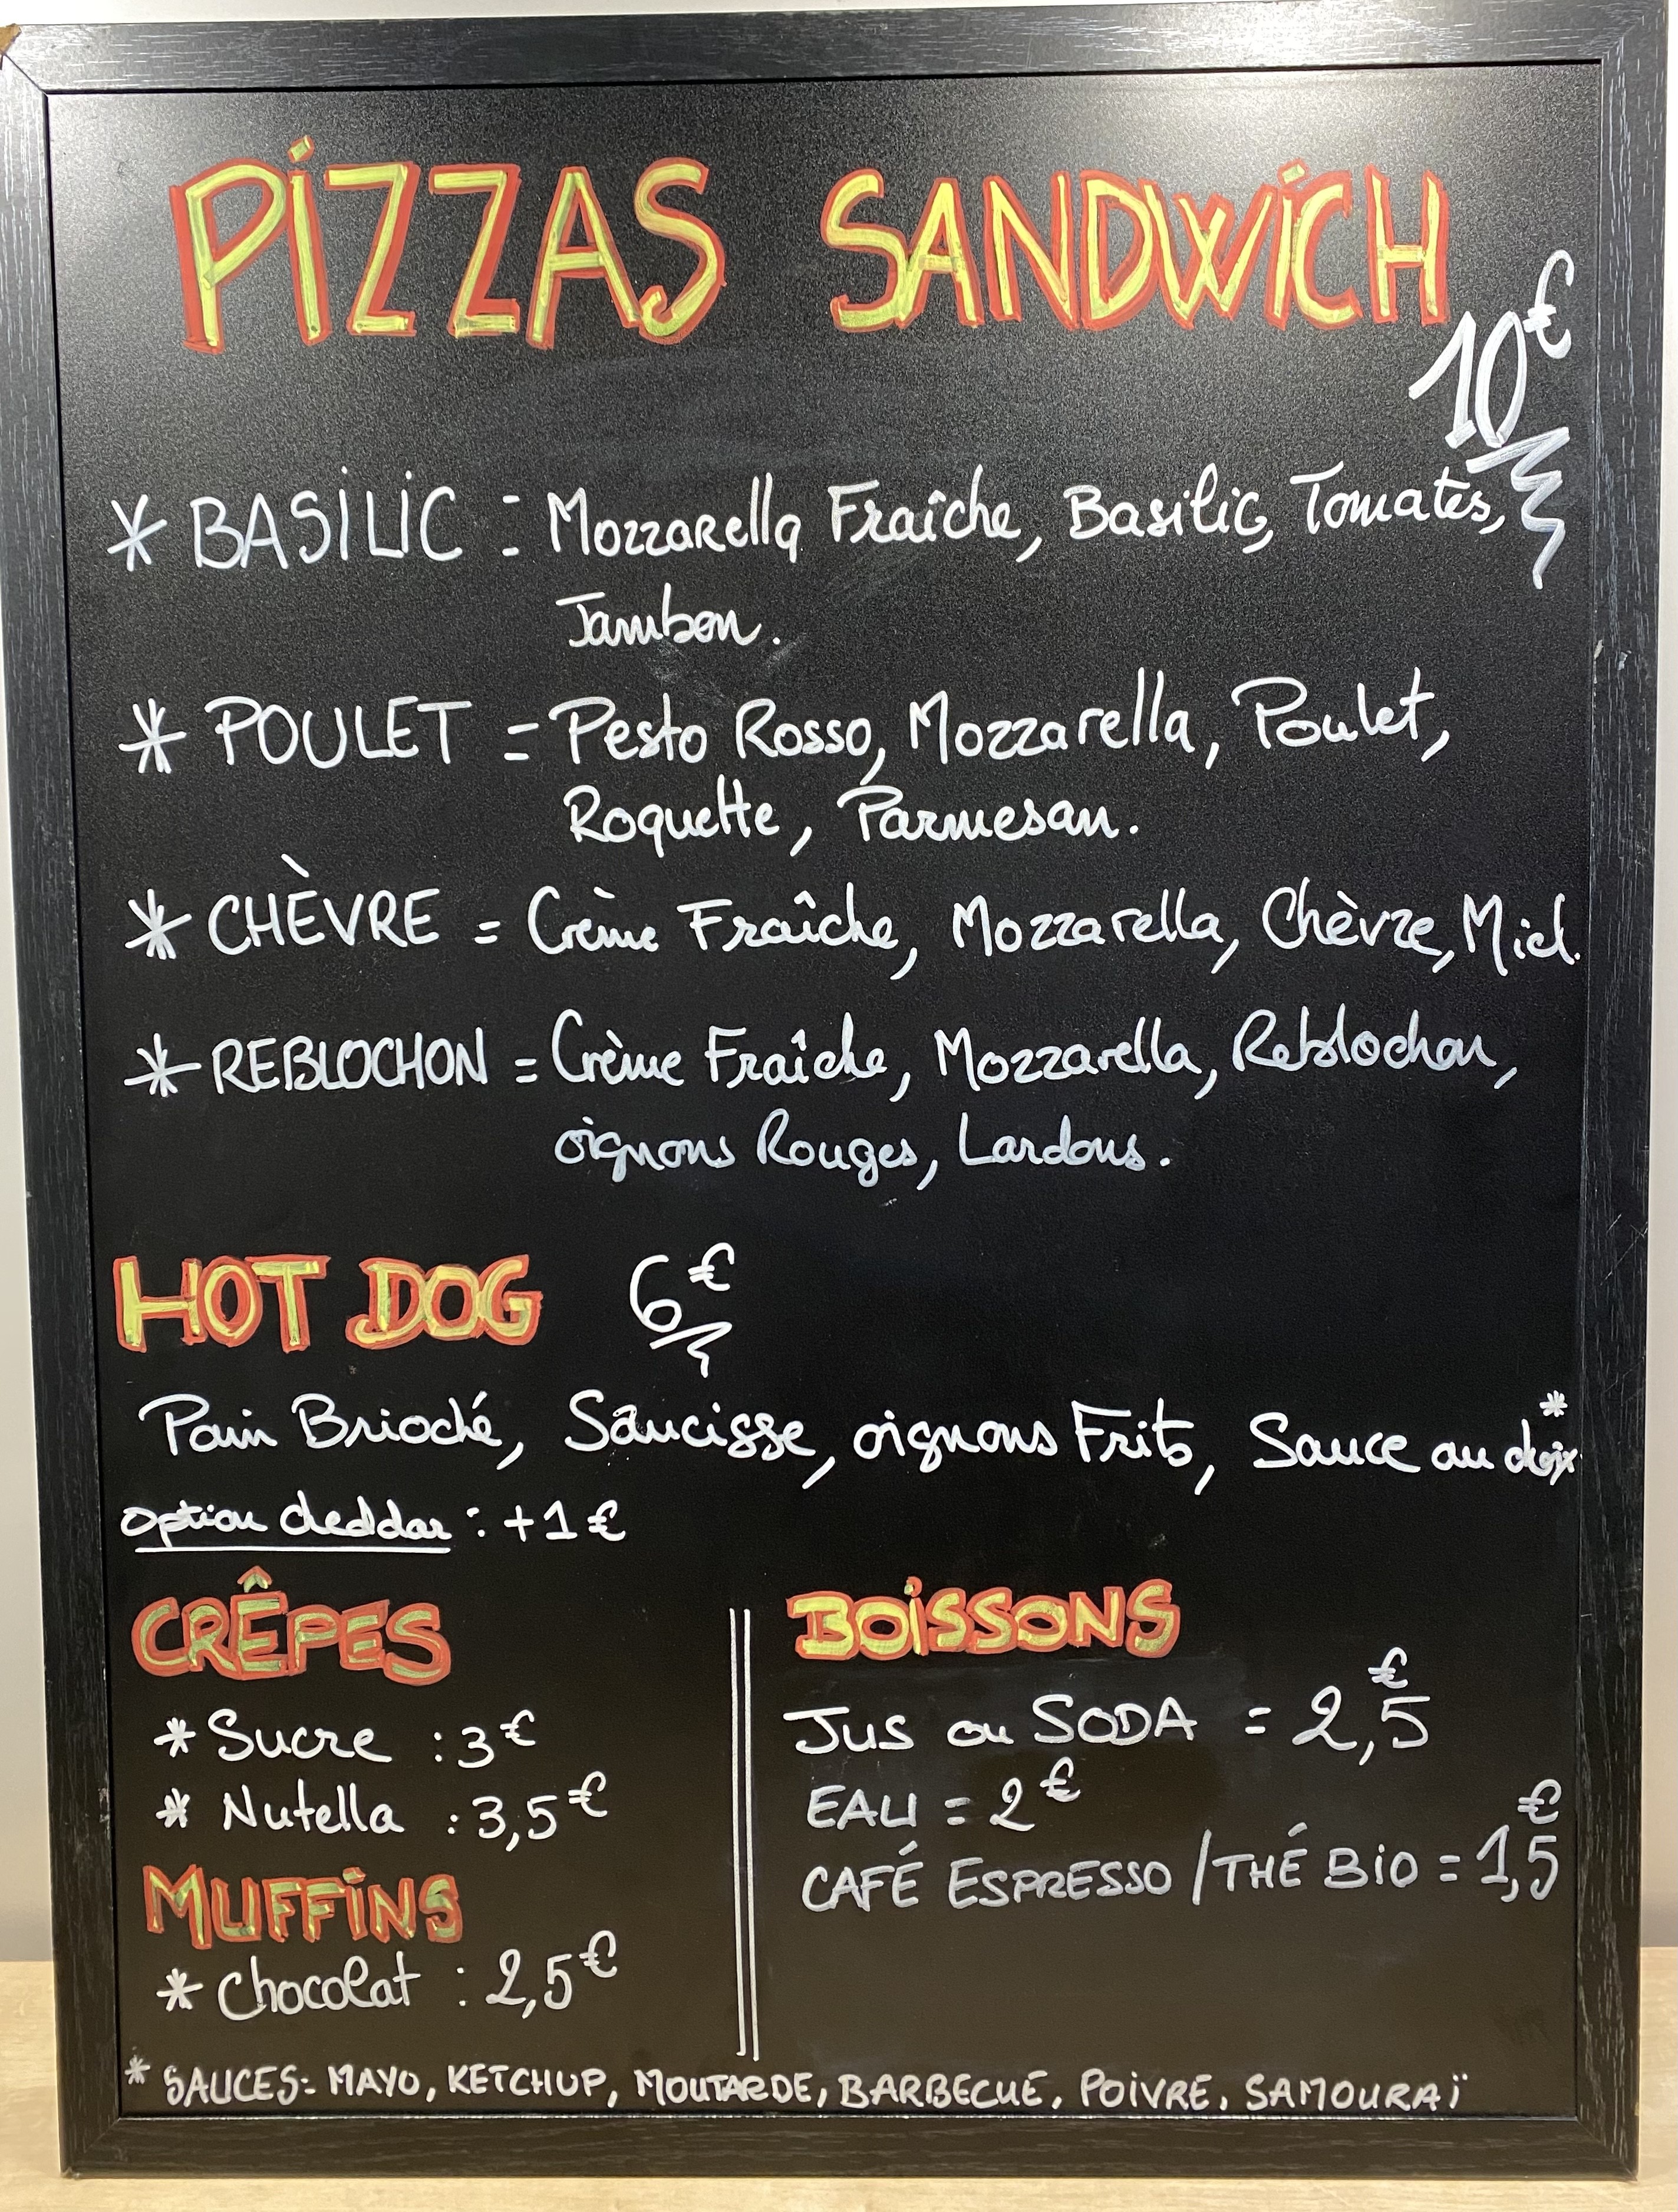 PiZZAS SANDWiCH
10€
* BASiLiC = Mozzarella Fraîche, Basilic, Tomates,
Jambon.
* POULET = Pesto Rosso, Mozzarella, Poulet,
Roquette, Parmesan.
* CHÈVRE = Crème Fraîche, Mozzarella, Chèvre, Miel.
* REBLOCHON = Crème Fraîche, Mozzarella, Reblochon,
oignons Rouges, Lardons.
HOT DOG 6€
Pain Brioché, Saucisse, oignons Frits, Sauce au choix*
option cheddar : +1€
CRÊPES
* Sucre : 3€
* Nutella : 3,5€
MUFFiNS
* Chocolat : 2,5€
BOiSSONS
JUS ou SODA = 2,5€
EAU = 2€
CAFÉ ESPRESSO / THÉ BiO = 1,5€
* SAUCES: MAYO, KETCHUP, MOUTARDE, BARBECUE, POiVRE, SAMOURAÏ